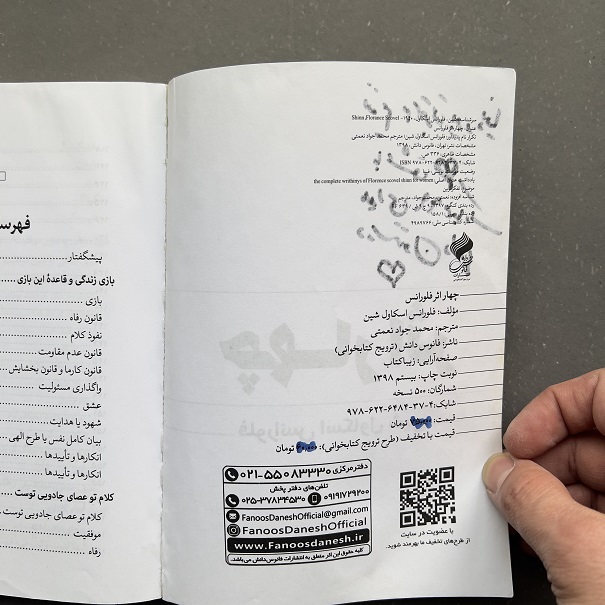 سرشناسه: شین، فلورانس اسکاول، ۱۹۴۰- Shinn ,Florance Scovel
مشخصات نشر: تهران، فانوس دانش، ۱۳۹۸.
مشخصات ظاهری: ۳۳۶ ص.
the complete writhinys of Florence scovel shinn for women
چهار اثر فلورانس
مؤلف: فلورانس اسکاول شین
مترجم: محمد جواد نعمتی
ناشر: فانوس دانش (ترویج کتابخوانی)
صفحه‌آرایی: زیباکتاب
نوبت چاپ: بیستم ۱۳۹۸
شمارگان: ۵۰۰ نسخه
شابک: ۴-۳۷-۶۴۸۴-۶۲۲-۹۷۸
قیمت: تومان
قیمت با تخفیف (طرح ترویج کتابخوانی): تومان
دفتر مرکزی ۰۲۱-۵۵۰۸۳۳۳۰
تلفن‌های دفتر پخش
۰۲۵-۳۷۸۳۴۵۳۰ ۰۹۱۹۱۷۲۹۲۰۰
FanoosDaneshOfficial@gmail.com
FanoosDaneshOfficial
www.Fanoosdanesh.ir
کلیه حقوق این اثر متعلق به انتشارات فانوس‌دانش می‌باشد.
با عضویت در سایت
از طرح‌های تخفیف ما بهرمند شوید.
فهرس
پیشگفتار
بازی زندگی و قاعدهٔ این بازی
بازی
قانون رفاه
نفوذ کلام
قانون عدم مقاومت
قانون کارما و قانون بخشایش
واگذاری مسئولیت
عشق
شهود یا هدایت
بیان کامل نفس یا طرح الهی
انکارها و تأییدها
انکارها و تأییدها
کلام تو عصای جادویی توست
کلام تو عصای جادویی توست
موفقیت
رفاه